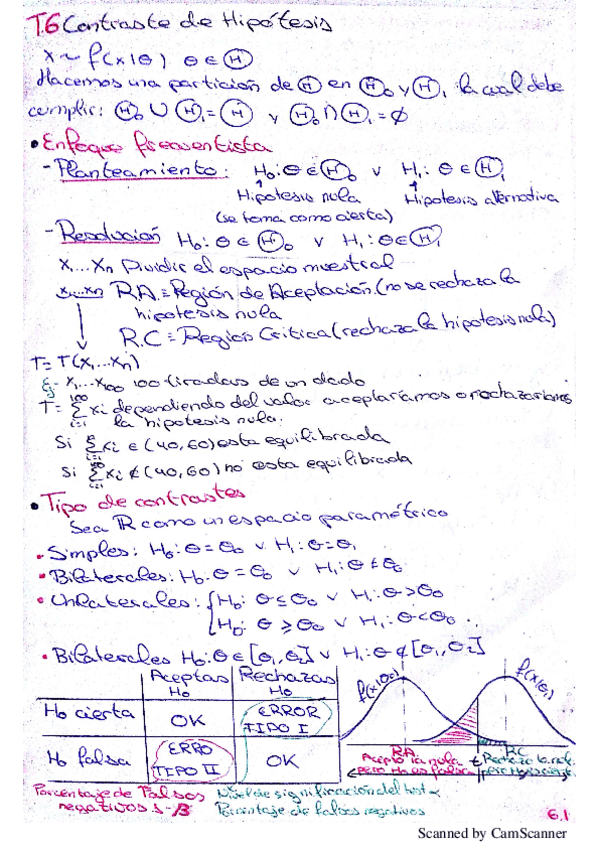 T.6 Contraste de Hipótesis
X ~ f(x|θ) θ ∈ Ⓗ
Hacemos una partición de Ⓗ en Ⓗ₀ y Ⓗ₁, la cual debe
cumplir: Ⓗ₀ ∪ Ⓗ₁ = Ⓗ y Ⓗ₀ ∩ Ⓗ₁ = ∅
• Enfoque frecuentista
- Planteamiento: H₀: θ ∈ Ⓗ₀ v H₁: θ ∈ Ⓗ₁
Hipótesis nula Hipótesis alternativa
(se toma como cierta)
- Resolución H₀: θ ∈ Ⓗ₀ v H₁: θ ∈ Ⓗ₁
X₁...Xn Dividir el espacio muestral
X₁...Xn RA = Región de Aceptación (no se rechaza la
hipótesis nula
R.C = Región Crítica (rechaza la hipótesis nula)
T = T(X₁...Xn)
Ej - X₁...X₁₀₀ 100 tiradas de un dado
T = Σ xi dependiendo del valor aceptaríamos o rechazaríamos
la hipótesis nula.
Si Σ xi ∈ (40,60) esta equilibrada
Si Σ xi ∉ (40,60) no esta equilibrada
• Tipo de contrastes
Sea ℝ como un espacio paramétrico
• Simples: H₀: θ = θ₀ v H₁: θ = θ₁
• Bilaterales: H₀: θ = θ₀ v H₁: θ ≠ θ₀
• Unilaterales: { H₀: θ ≤ θ₀ v H₁: θ > θ₀
H₀: θ ≥ θ₀ v H₁: θ < θ₀
• Bilaterales H₀: θ ∈ [θ₁, θ₂] v H₁: θ ∉ [θ₁, θ₂]
Aceptas H₀ Rechazas H₀
H₀ cierta OK ERROR TIPO I
H₀ falsa ERRO TIPO II OK
f(x|θ₀) f(x|θ₁)
RA RC
Acepto la nula Rechazo la nul.
pero H₀ es falsa
Porcentaje de Falsos Nivel de significación del test α
negativos 1-β Porcentaje de falsos negativos
6.1
Scanned by CamScanner